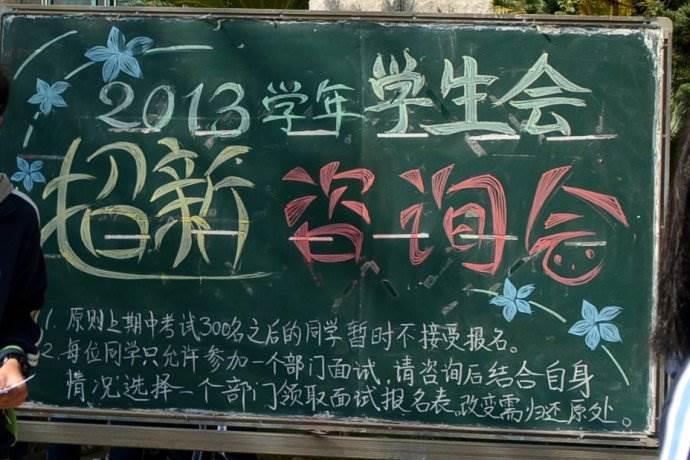 2013学年学生会
招新 咨询会
1. 原则上期中考试300名之后的同学暂时不接受报名。
2. 每位同学只允许参加一个部门面试,请咨询后结合自身
情况选择一个部门领取面试报名表。改变需归还原处。